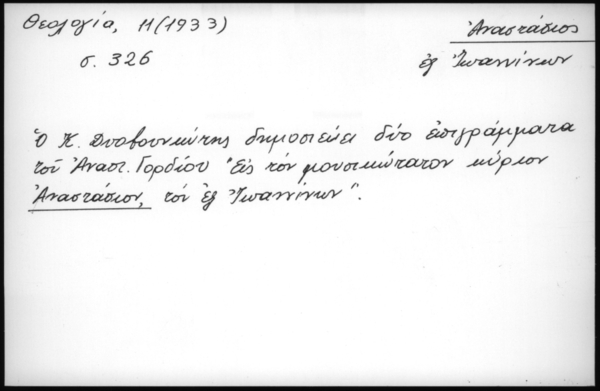 Θεολογία, 11(1933)
σ. 326
Ἀναστάσιος
ἐξ Ἰωαννίνων
Ὁ Κ. Δυοβουνιώτης δημοσιεύει δύο ἐπιγράμματα
τοῦ Ἀναστ. Γορδίου "Εἰς τὸν μουσικώτατον κύριον
Ἀναστάσιον, τὸν ἐξ Ἰωαννίνων".